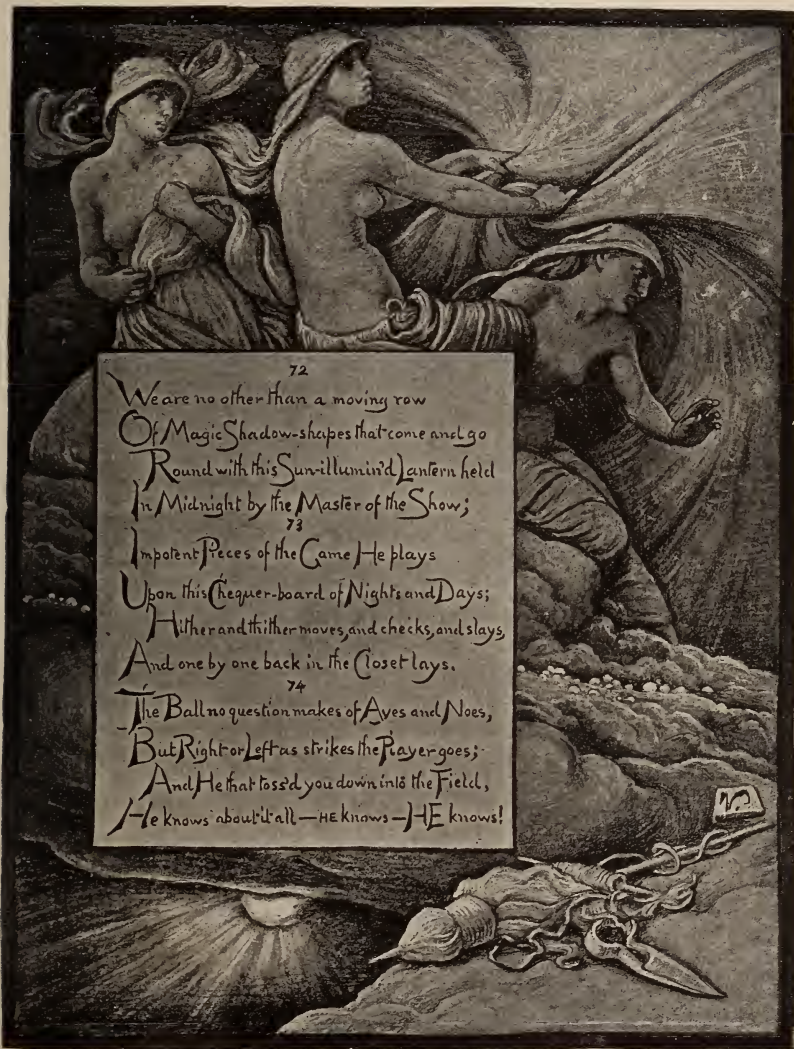 72
We are no other than a moving row
Of Magic Shadow-shapes that come and go
Round with this Sun-illumin'd Lantern held
In Midnight by the Master of the Show;
73
Impotent Pieces of the Game He plays
Upon this Chequer-board of Nights and Days;
Hither and thither moves, and checks, and slays,
And one by one back in the Closet lays.
74
The Ball no question makes of Ayes and Noes,
But Right or Left as strikes the Player goes;
And He that toss'd you down into the Field,
He knows about it all — HE knows — HE knows!